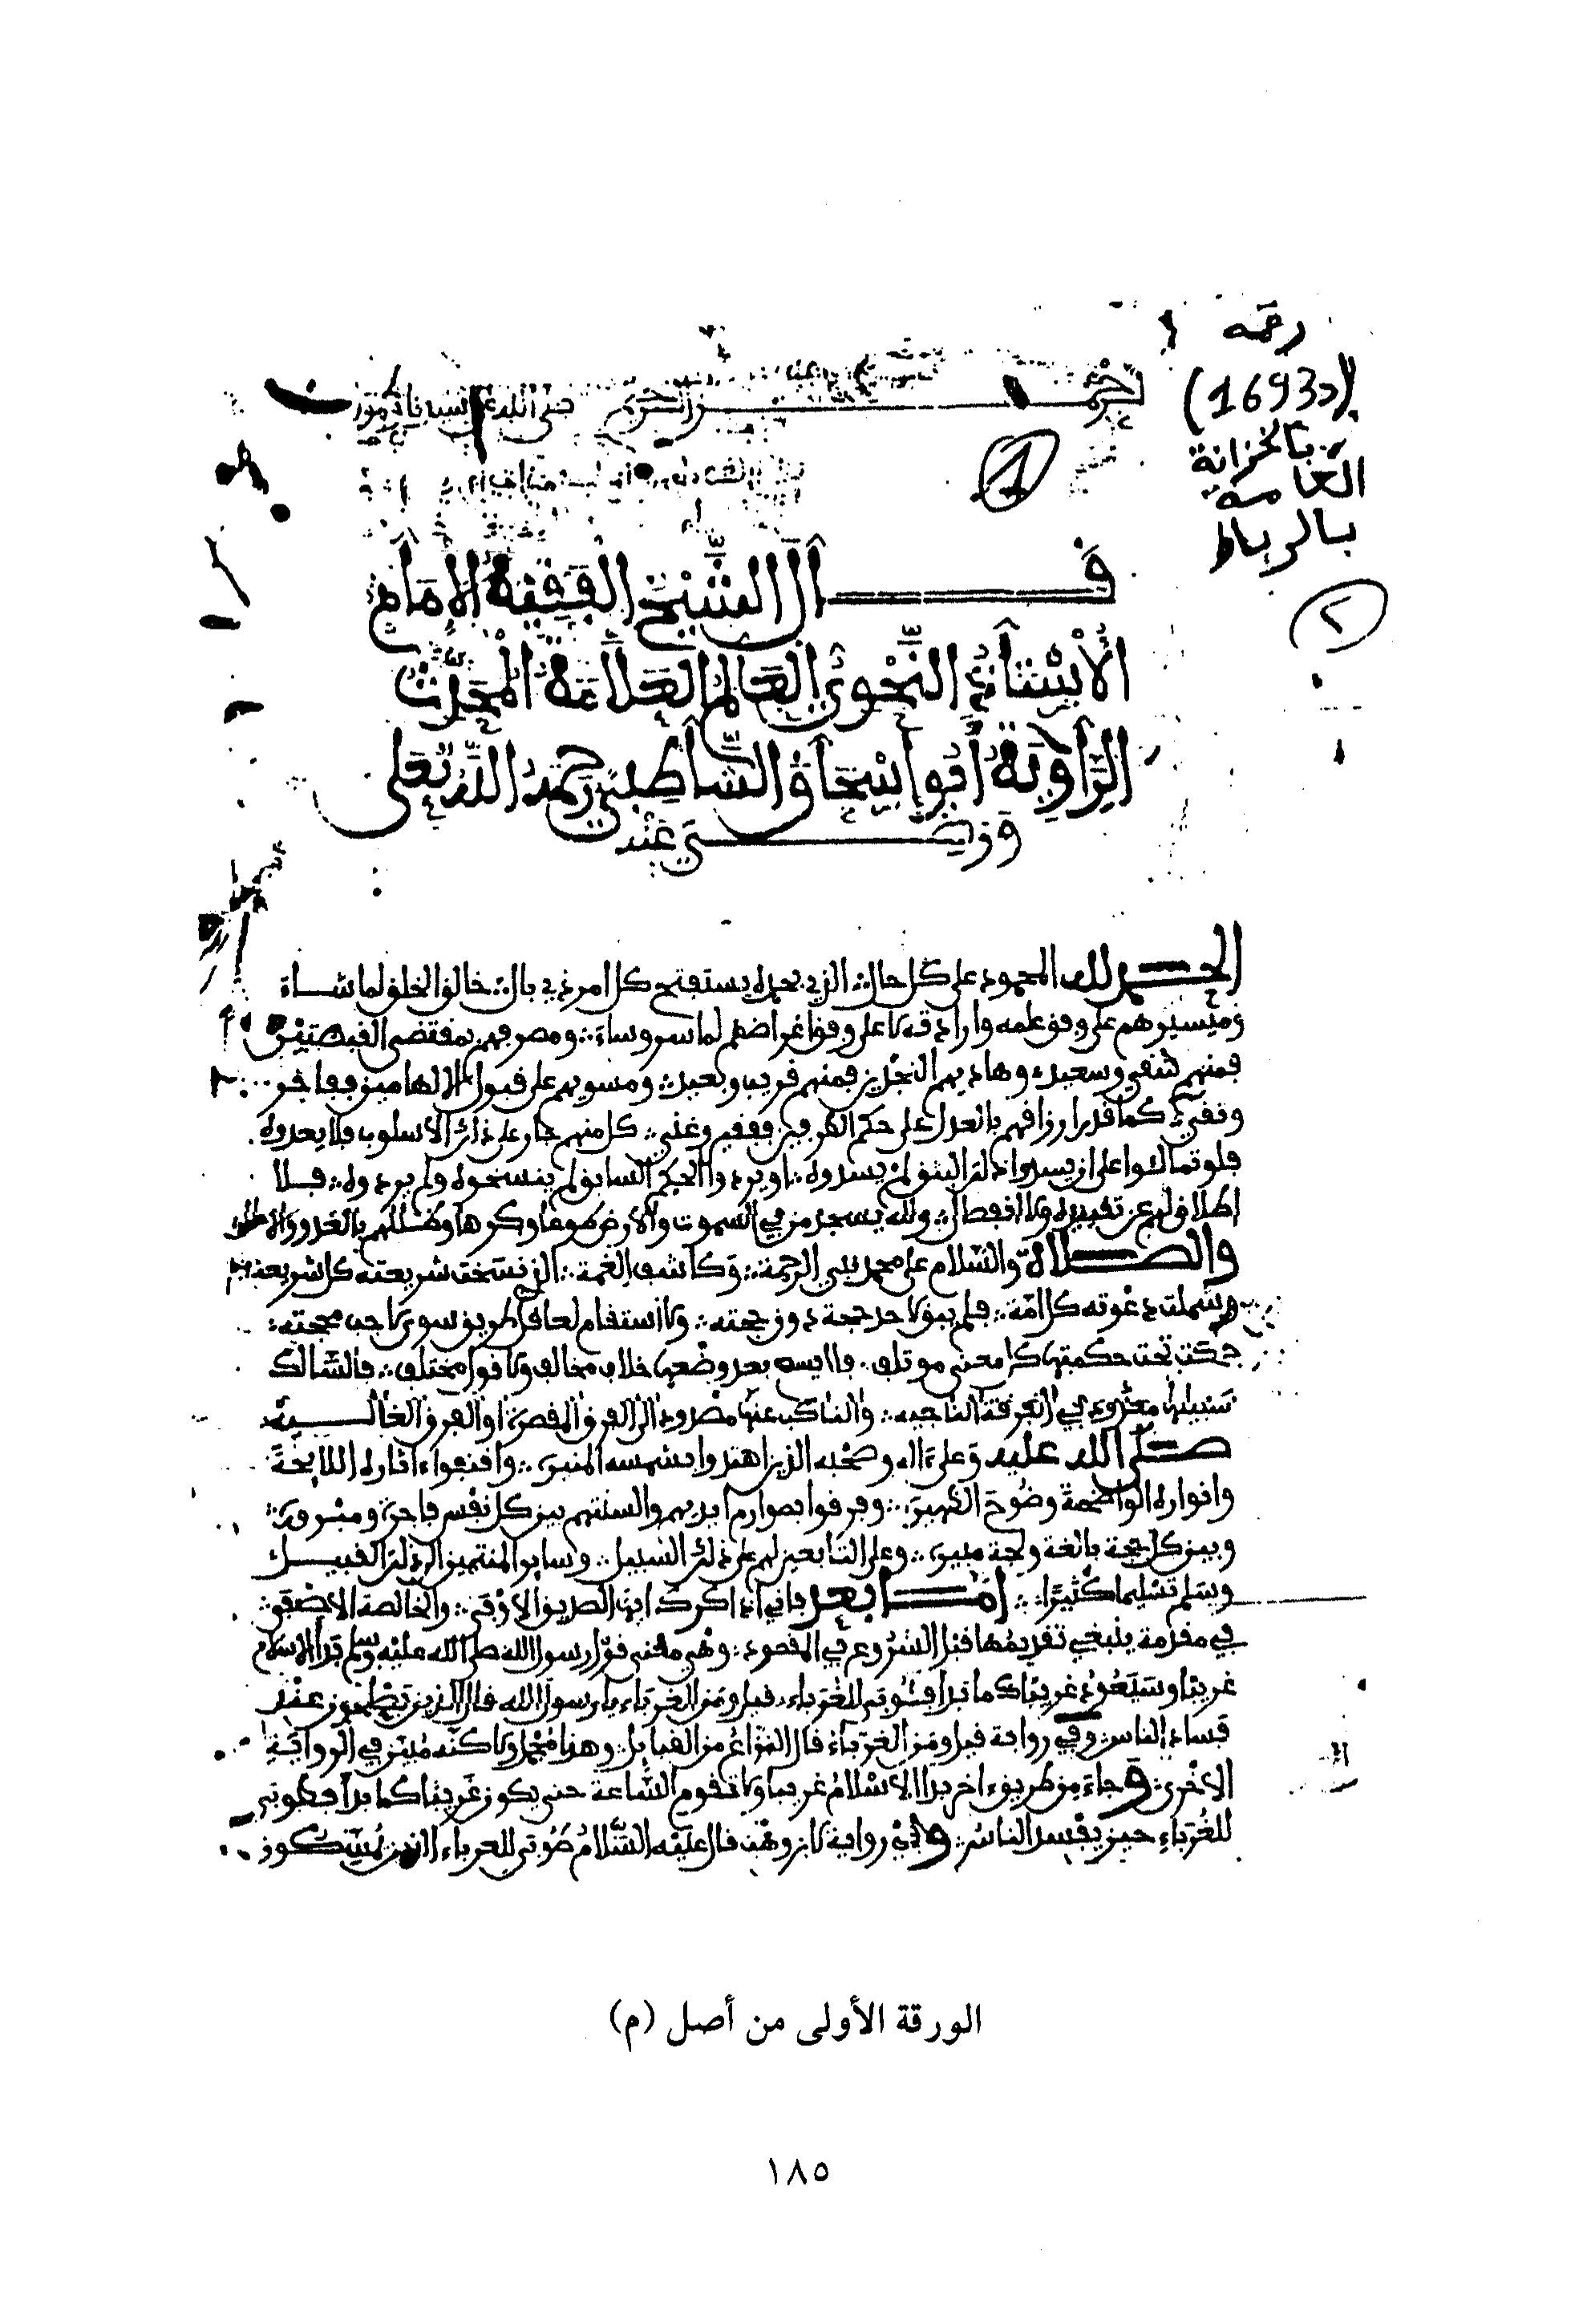 رحمه
(1693د)
بالخزانة
العامة
بالرباط
٢
الرحمـن الرحيم صلى الله على سيدنا ومولانا
1
قال الشيخ الفقيه الإمام
الأستاذ النحوي العالم العلامة المحدث
الراوية أبو إسحاق الشاطبي رحمه الله تعلى
ورضي عنه
الحمد لله المحمود على كل حال الذي بحمده يستفتح كل امر ذي بال خالق الخلق لما شاء
وميسرهم على وفق علمه وارادته لا على وفق اغراضهم لما سر وساء ومصرفهم بمقتضى القبضتين
فمنهم شقي وسعيد وهاديهم النجدين فمنهم قريب وبعيد ومسويهم على قبول الالهامين ففاجر
وتقي كما قدر ارزاقهم بالعدل على حكم الطرفين ففقير وغني كل منهم جار على ذلك الاسلوب فلا يعدوه
فلو تمالئوا على ان يسدوا ذلك البثق لم يسدوه او يردوا الحكم السابق لم ينسخوه ولم يردوه فلا
اطلاق لهم عن تقييده ولا انفصال ولله يسجد من في السموت والارض طوعا وكرها وظللهم بالغدو والاصال
والصلاة والسلام على محمد نبي الرحمة وكاشف الغمة الذي نسخت شريعته كل شريعة
وشملت دعوته كل امة فلم يبق لاحد حجة دون حجته ولا استقام لعاقل طريق سوى لاحب محجته
جمعت تحت حكمتها كل معنى موتلف فلا يسمع بعد وضعها خلاف مخالف ولا قول مختلف فالسالك
سبيلها معدود في الفرقة الناجيه والناكب عنها مصدود الى الفرق المقصرة او الفرق الغالية
صلى الله عليه وعلى ءاله وصحبه الذين اهتدوا بشمسه المنيرة واقتفوا ءاثاره اللايحة
وانواره الواضحة وضوح الظهيرة وفرقوا بصوارم ايديهم والسنتهم بين كل نفس فاجرة ومبرورة
وبين كل حجة بالغة وحجة مبيرة وعلى التابعين لهم على ذلك السبيل وساير المنتمين الى ذلك القبيل
وسلم تسليما كثيرا اما بعد فاني اذاكرك ايها الصديق الاوفى والخالصة الاصفى
في مقدمة ينبغي تقديمها قبل الشروع في المقصود وهي معنى قول رسول الله صلى الله عليه وسلم بدا الاسلام
غريبا وسيعود غريبا كما بدا فطوبى للغرباء قيل ومن الغرباء يا رسول الله قال الذين يصلحون عند
فساد الناس وفي رواية قيل ومن الغرباء قال النزاع من القبايل وهذا مجمل ولاكنه مبين في الرواية
الاخرى وجاء من طريق ءاخر بدا الاسلام غريبا ولا تقوم الساعة حتى يكون غريبا كما بدا فطوبى
للغرباء حين يفسد الناس وفي رواية لابن وهب قال عليه السلام طوبى للغرباء الذين يمسكون
الورقة الأولى من أصل (م)
١٨٥